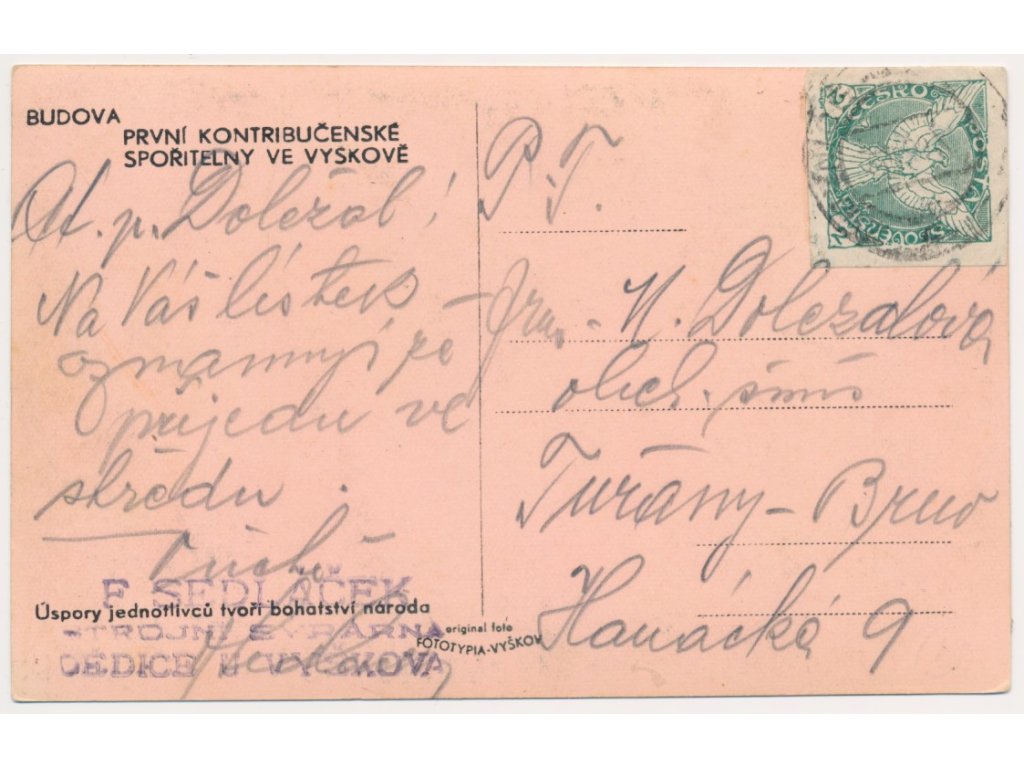 BUDOVA
PRVNÍ KONTRIBUČENSKÉ
SPOŘITELNY VE VYŠKOVĚ
p. Doležal!
Na Váš lístek
že
přijedu ve
středu.
F SEDLÁČEK
STROJNÍ SÝRÁRNA
DĚDICE U VYŠKOVA
Úspory jednotlivců tvoří bohatství národa
original foto
FOTOTYPIA-VYŠKOV
P.T.
N. Doležalová
obch.
Tuřany - Brno
Hanácká 9
POŠTA